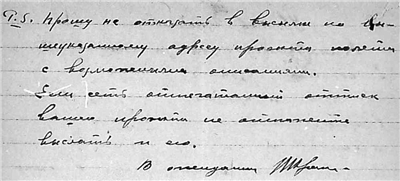 P.S. Прошу не отказать в высылки по вы-
шеуказанному адресу проекта полета
с возможными описаниями.
Если есть отпечатанный оттиск
вашего проекта не откажите
выслать и его.
В ожидании